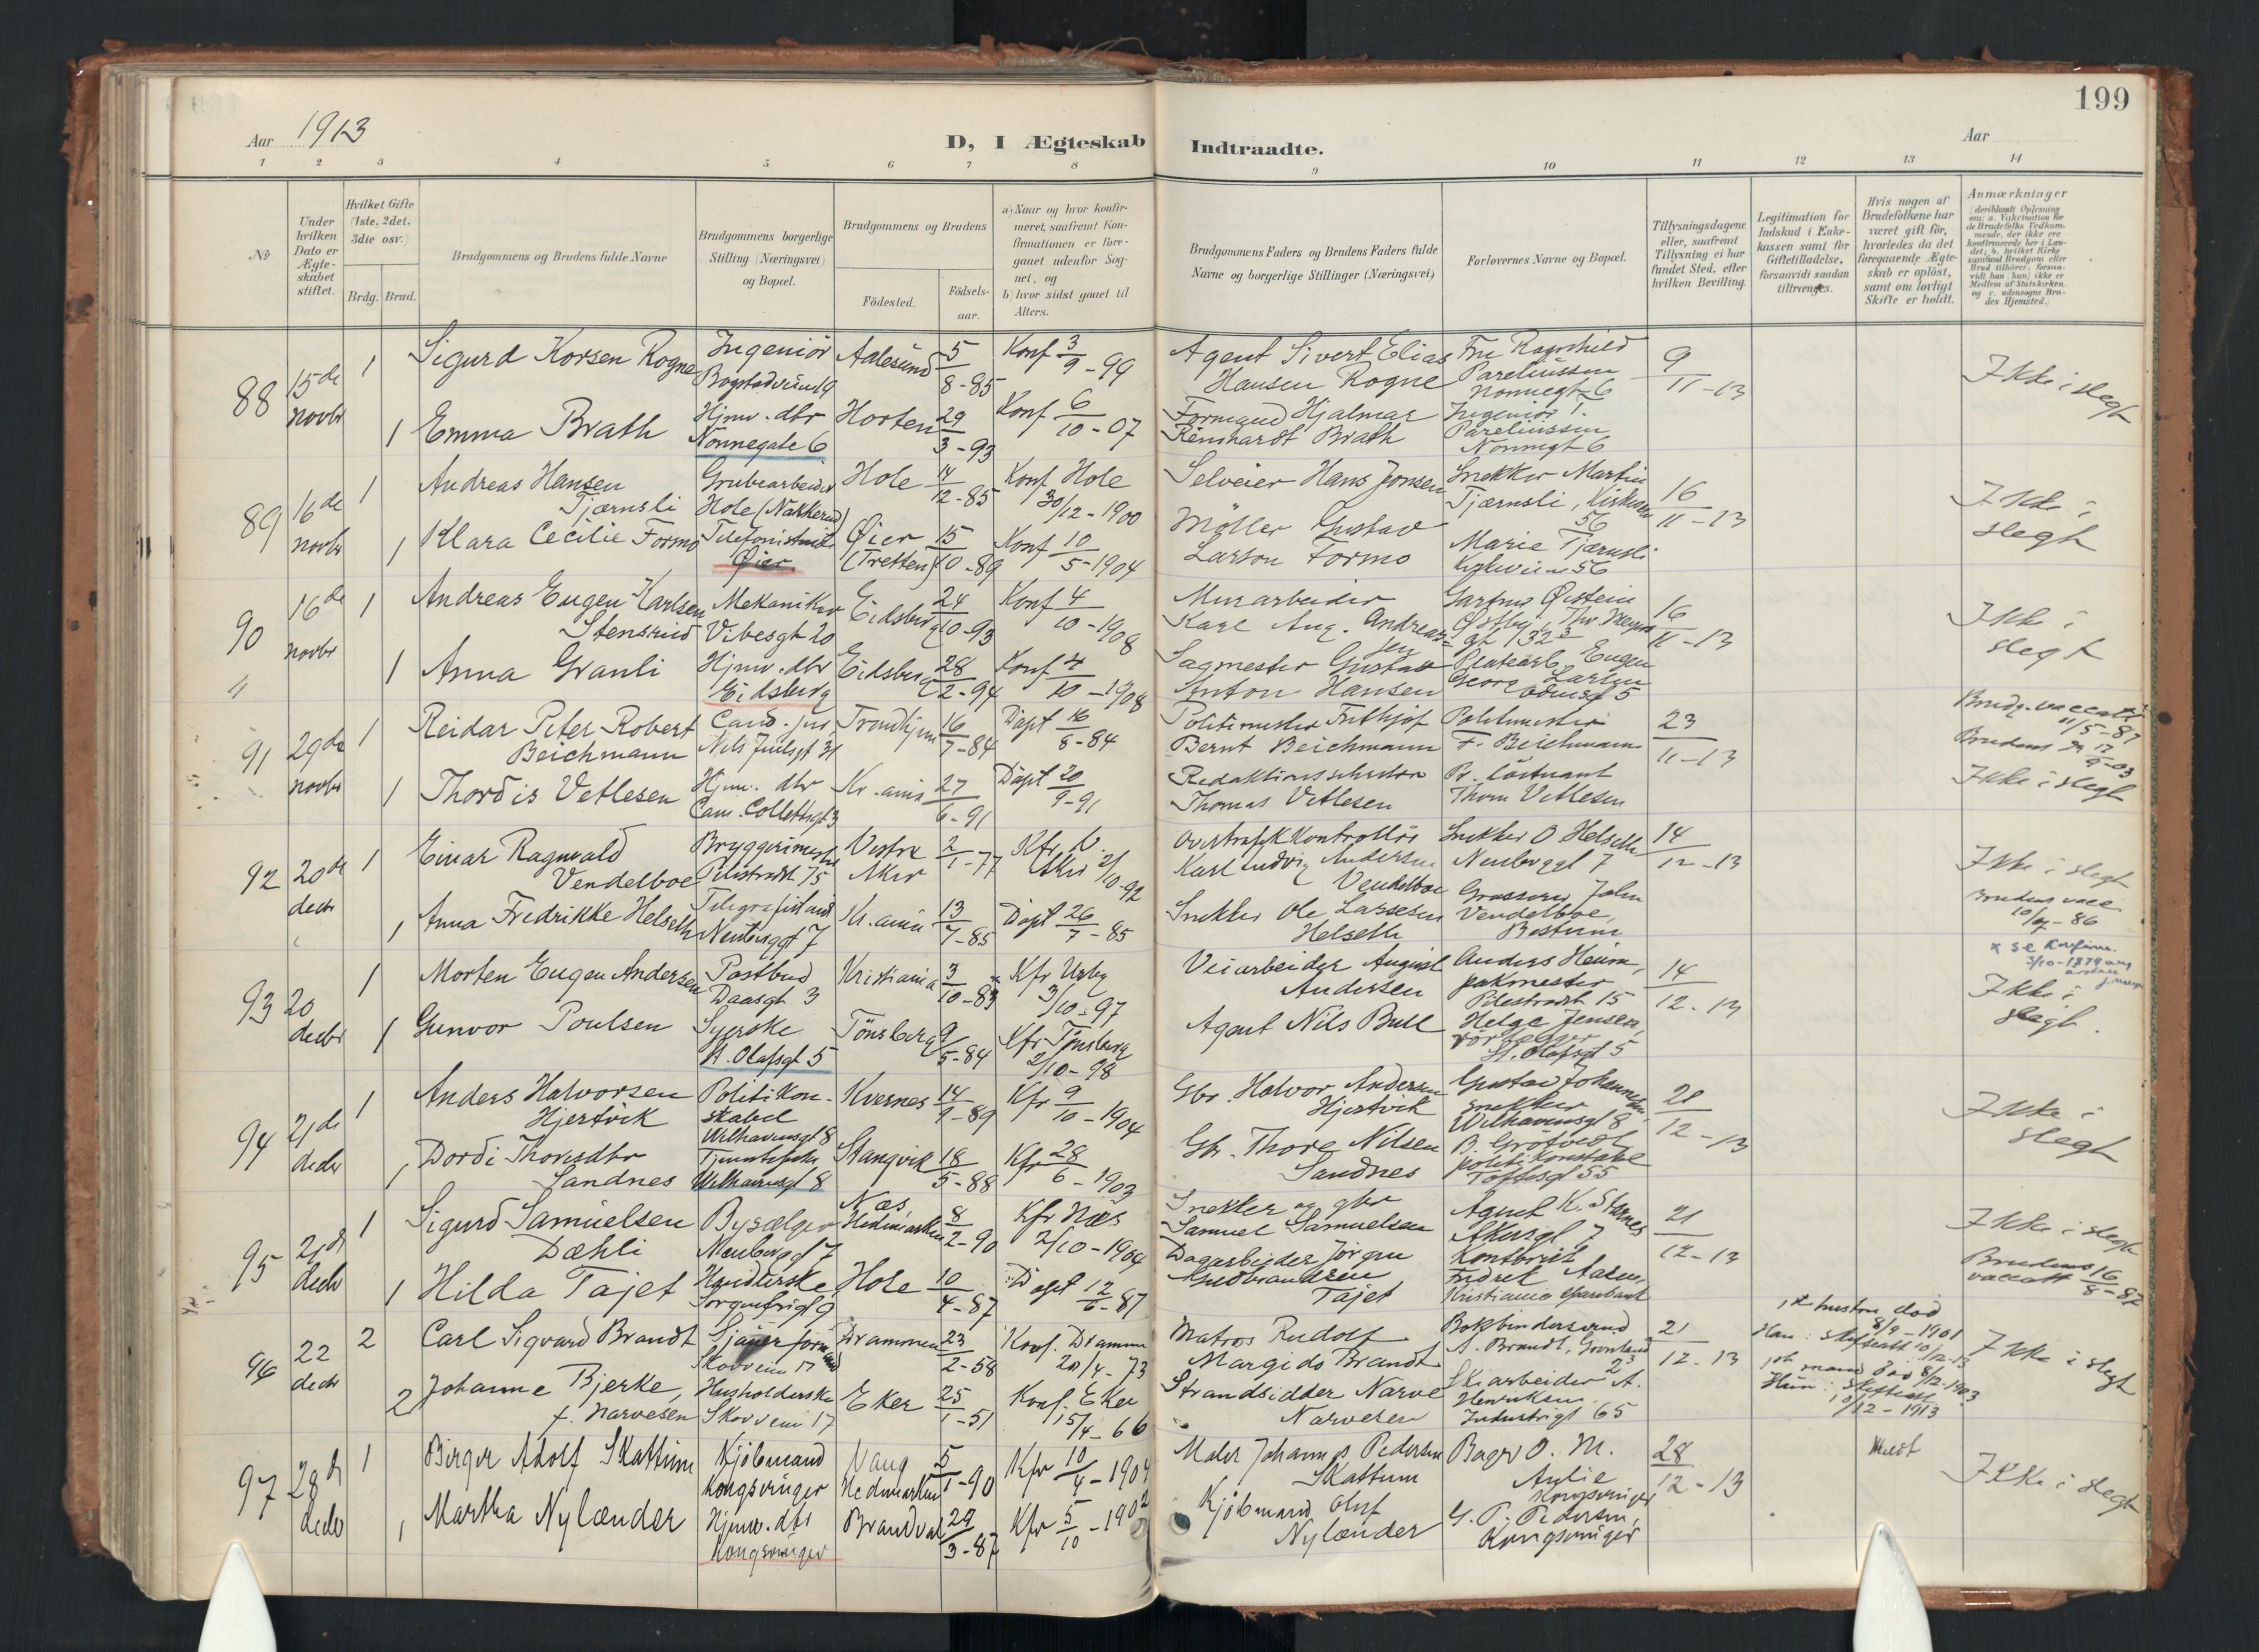 199
Aar 1913
D, I Ægteskab Indtraadte.
Aar
1 2 3 4 5 6 7 8 9 10 11 12 13 14
No
Under hvilken Dato er Ægteskabet stiftet.
Hvilket Gifte (1ste, 2det, 3die osv.)
Brdg. Brud.
Brudgommens og Brudens fulde Navne
Brudgommens borgerlige Stilling (Næringsvei) og Bopæl.
Brudgommens og Brudens
Födested.
Födselsaar.
a) Naar og hvor konfirmeret, saafremt Konfirmationen er foregaaet udenfor Sognet, og
b) hvor sidst gaaet til Alters.
Brudgommens Faders og Brudens Faders fulde Navne og borgerlige Stillinger (Næringsvei)
Forlovernes Navne og Bopæl.
Tillysningsdagene eller, saafremt Tillysning ei har fundet Sted, efter hvilken Bevilling.
Legitimation for Indskud i Enkekassen samt for Giftetilladelse, forsaavidt saadan tiltrænges.
Hvis nogen af Brudefolkene har været gift før, hvorledes da det foregaaende Ægteskab er oplöst, samt om lovligt Skifte er holdt.
Anmærkninger
88 15de novbr
1 Sigurd Korsen Rogne Ingeniör Bogstadveien 19 Aalesund 5/8-85 Konf 3/9-99
Agent Sivert Elias Hansen Rogne Fru Ragnhild Pareliussen Nonnegt 6 9/11-13 Ikke i slegt
1 Emma Brath Hjmv. dtr Nonnegate 6 Horten 29/3-93 Konf 6/10-07
Formand Hjalmar Reinhardt Brath Ingeniör T. Pareliussen Nonnegt 6
89 16de novbr
1 Andreas Hansen Tjærnsli Grubearbeider Hole (Nakkerud) Hole 14/12-85 Konf Hole 30/12-1900
Selveier Hans Jonsen Snekker Martin Tjærnsli, Kirkeveien 56 16/11-13 Ikke i slegt
1 Klara Cecilie Formo Telefonistinde Øier Øier (Tretten) 15/10-89 Konf 10/5-1904
Möller Gustav Larson Formo Marie Tjærnsli Kirkeveien 56
90 16de novbr
1 Andreas Eugen Karlsen Stensrud Mekaniker Vibesgt 20 Eidsberg 24/10-93 Konf 4/10-1908
Murarbeider Karl Aug. Andreassen Gartner Øistein Østby Thv. Meyers gt 32 16/11-13 Ikke i slegt
1 Anna Granli Hjmv. dtr Eidsberg Eidsberg 28/2-94 Konf 4/10-1908
Sagmester Gustav Anton Hansen Eugen Georg Larsen Odinsgt 5
91 29de novbr
1 Reidar Peter Robert Beichmann Cand. jur. Nils Juelsgt 31 Trondhjem 16/7-84 Däpt 16/8-84
Politimester Frithjof Bernt Beichmann Politimester F. Beichmann 23/11-13 Brudg. vaccatt 11/5-87
1 Thordis Vetlesen Hjmv. dtr Cam. Collettsgt 3 Kr.ania 27/6-91 Däpt 20/9-91
Redaktionssekretær Thomas Vetlesen Pr. löitnant Thom Vetlesen Brudens 17/9-03 Ikke i slegt
92 20de decbr
1 Einar Ragnvald Vendelboe Bryggerimester Pilestrædet 75 Vestre Aker 2/1-77 Kfr V. Aker 2/10-92
Overtrafikkontrollör Karl Ludvig Andersen Vendelboe Snekker O Helseth Neuberggt 7 14/12-13 Ikke i slegt
1 Anna Fredrikke Helseth Telegrafistinde Neuberggt 7 Kr.ania 13/7-85 Däpt 26/7-85
Snekker Ole Larssen Helseth Grosserer John Vendelboe, Bestum Brudens vacc 10/9-86
93 20 decbr
1 Morten Eugen Andersen Postbud Daasgt 3 Kristiania 3/10-83 Kfr Urbg 3/10-97
Veiarbeider August Andersen Anders Heim, pakmester Pilestrædet 15 14/12-13 Ikke i slegt.
1 Gunvor Poulsen Syerske St. Olafsgt 5 Tönsberg 9/5-84 Kfr Tönsberg 2/10-98
Agent Nils Bull Helge Jensen, rörlægger St. Olafsgt 5
94 21de decbr
1 Anders Halvorsen Hjertvik Politikonstabel Welhavensgt 8 Kvernes 14/9-89 Kfr 9/10-1904
Gbr. Halvor Andersen Hjertvik Gustav Johannesen, snekker Welhavensgt 8 21/12-13 Ikke i slegt
1 Dordi Thoresdtr Sandnes Tjenestepike Welhavensgt 8 Stangvik 18/5-88 Kfr 28/6-1903
Gbr. Thore Nilsen Sandnes B. Grötvedt politikonstabel Toftesgt 55
95 21de decbr
1 Sigurd Samuelsen Dæhli Bysælger Neuberggt 7 Næs, Hedemarken 8/2-90 Kfr Næs 2/10-1904
Snekker og gbr Samuel Samuelsen Agent K. Starnes Akersgt 7 21/12-13 Ikke i slegt
1 Hilda Tajet Handlerske, Sorgenfrigt 9 Hole 10/4-87 Däpt 12/6-87
Dagarbeider Jörgen Gudbrandsen Tajet Kontorist Fredrik Aasen, Kristiania Sparebank Brudens vaccatt 16/8-87
96 22 decbr
2 Carl Sigvard Brandt Sjauerformand Skovveien 17 Drammen 23/2-58 Konf. Drammen 20/4-73
Matros Rudolf Margido Brandt Bokbindersvend A. Brandt, Grönland 23 21/12-13 1ste hustru död 8/9-1901 Han: skifteatt 10/12-13 Ikke i slegt
2 Johanne Bjerke, f. Narvesen Husholderske Skovveien 17 Eker 25/1-51 Konf. Eker 15/4-66
Strandsidder Narve Narvesen Skiarbeider A. Henriksen, Industrigt 65 1ste mand död 8/12-1903 Hun: skifteatt 10/12-1913
97 28de decbr
1 Birger Adolf Skattum Kjöbmand Kongsvinger Vang Hedemarken 5/1-90 Kfr 10/4-1904
Maler Johannes Pedersen Skattum Bager O. M. Aulie Kongsvinger 28/12-13 Ikke i slegt
1 Martha Nylænder Hjmv. dtr Kongsvinger Brandval 29/3-87 Kfr 5/10-1902
Kjöbmand Oluf Nylænder G. P. Pedersen, Kongsvinger